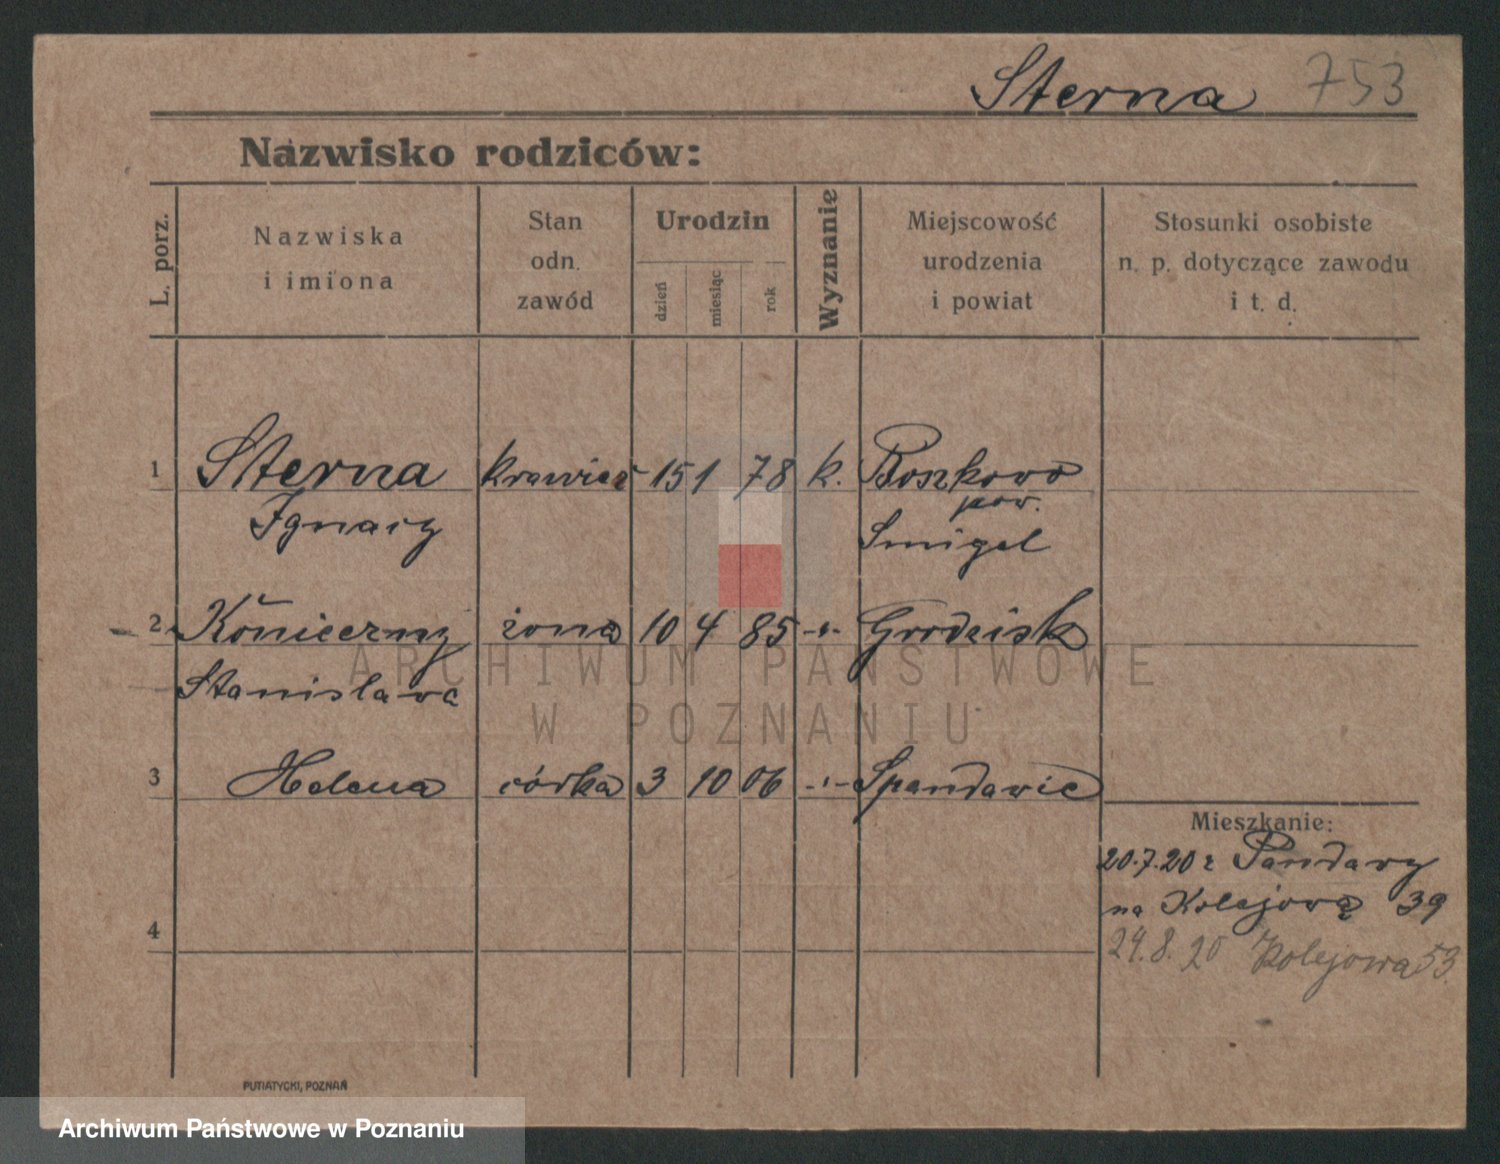 Sterna 753
Nazwisko rodziców:
L. porz.
Nazwiska
i imiona
Stan
odn.
zawód
Urodzin
dzień
miesiąc
rok
Wyznanie
Miejscowość
urodzenia
i powiat
Stosunki osobiste
n. p. dotyczące zawodu
i t. d.
1 Sterna krawiec 15 1 78 k. Boszkowo
pow.
Ignacy Smigel
2 Konieczny żona 10 4 85 -"- Grodzisk
Stanisława
3 Helena córka 3 10 06 -"- Spandawie
Mieszkanie:
20.7.20 z Pandawy
na Kolejową 39
4
24.8.20 Kolejowa 53.
ARCHIWUM PAŃSTWOWE
W POZNANIU
PUTIATYCKI, POZNAŃ
Archiwum Państwowe w Poznaniu